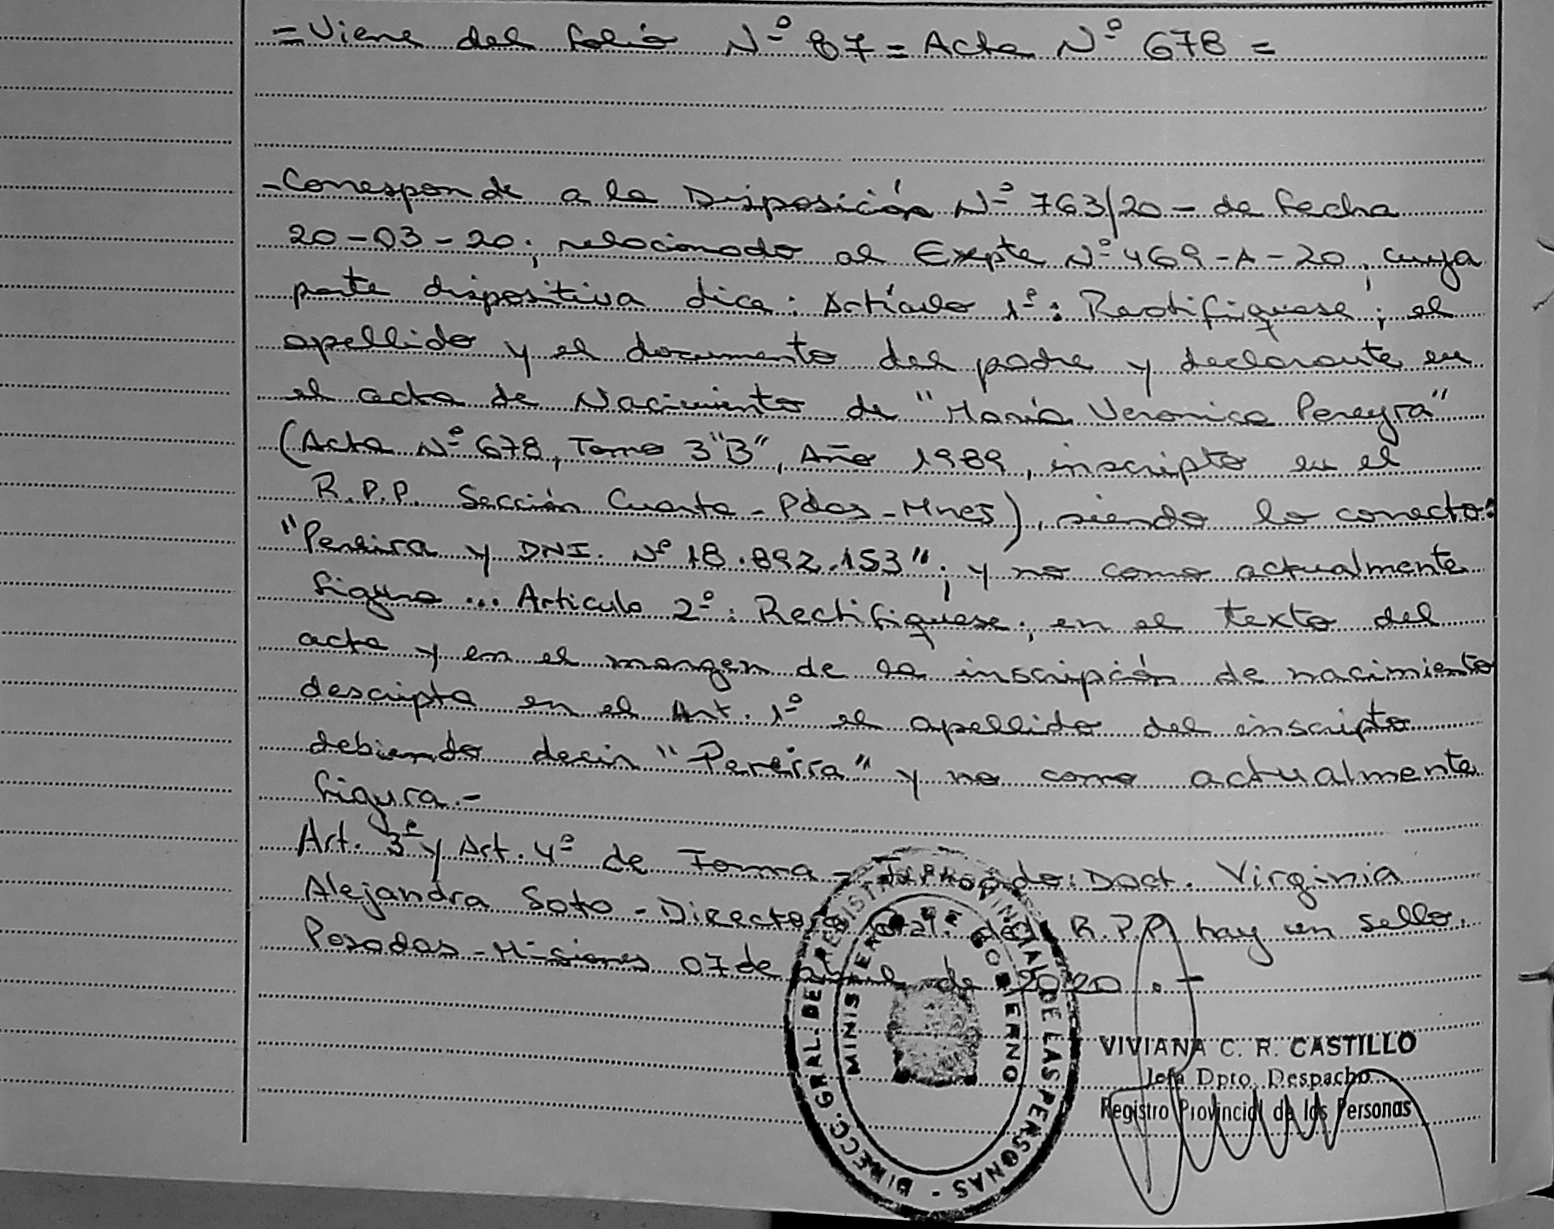 =Viene del folio Nº 87 = Acta Nº 678 =
-Corresponde a la Disposición Nº 763/20 - de fecha
20-03-20; relacionado al Expte Nº 469-A-20, cuya
parte dispositiva dice: Artículo 1º: Rectifíquese; el
apellido y el documento del padre y declarante en
el acta de Nacimiento de "María Veronica Pereyra"
(Acta Nº 678, Tomo 3"B", Año 1989, inscripto en el
R.P.P. Sección Cuarta - Pdas - Mnes), siendo lo correcto:
"Pereira y DNI. Nº 18.892.153"; y no como actualmente
figura ... Articulo 2º: Rectifiquese; en el texto del
acta y en el margen de la inscripción de nacimiento
descripta en el Art. 1º el apellido del inscripto
debiendo decir "Pereira" y no como actualmente
figura.-
Art. 3º y Art. 4º de Forma - Firmado: Doct. Virginia
Alejandra Soto - Directora Gral. del R.P.P. hay un sello.
Posadas - Misiones 07 de abril de 2020.-
DIRECC. GRAL. DEL REGISTRO PROVINCIAL DE LAS PERSONAS -
MINISTERIO DE GOBIERNO
VIVIANA C. R. CASTILLO
Jefa Dpto. Despacho
Registro Provincial de las Personas